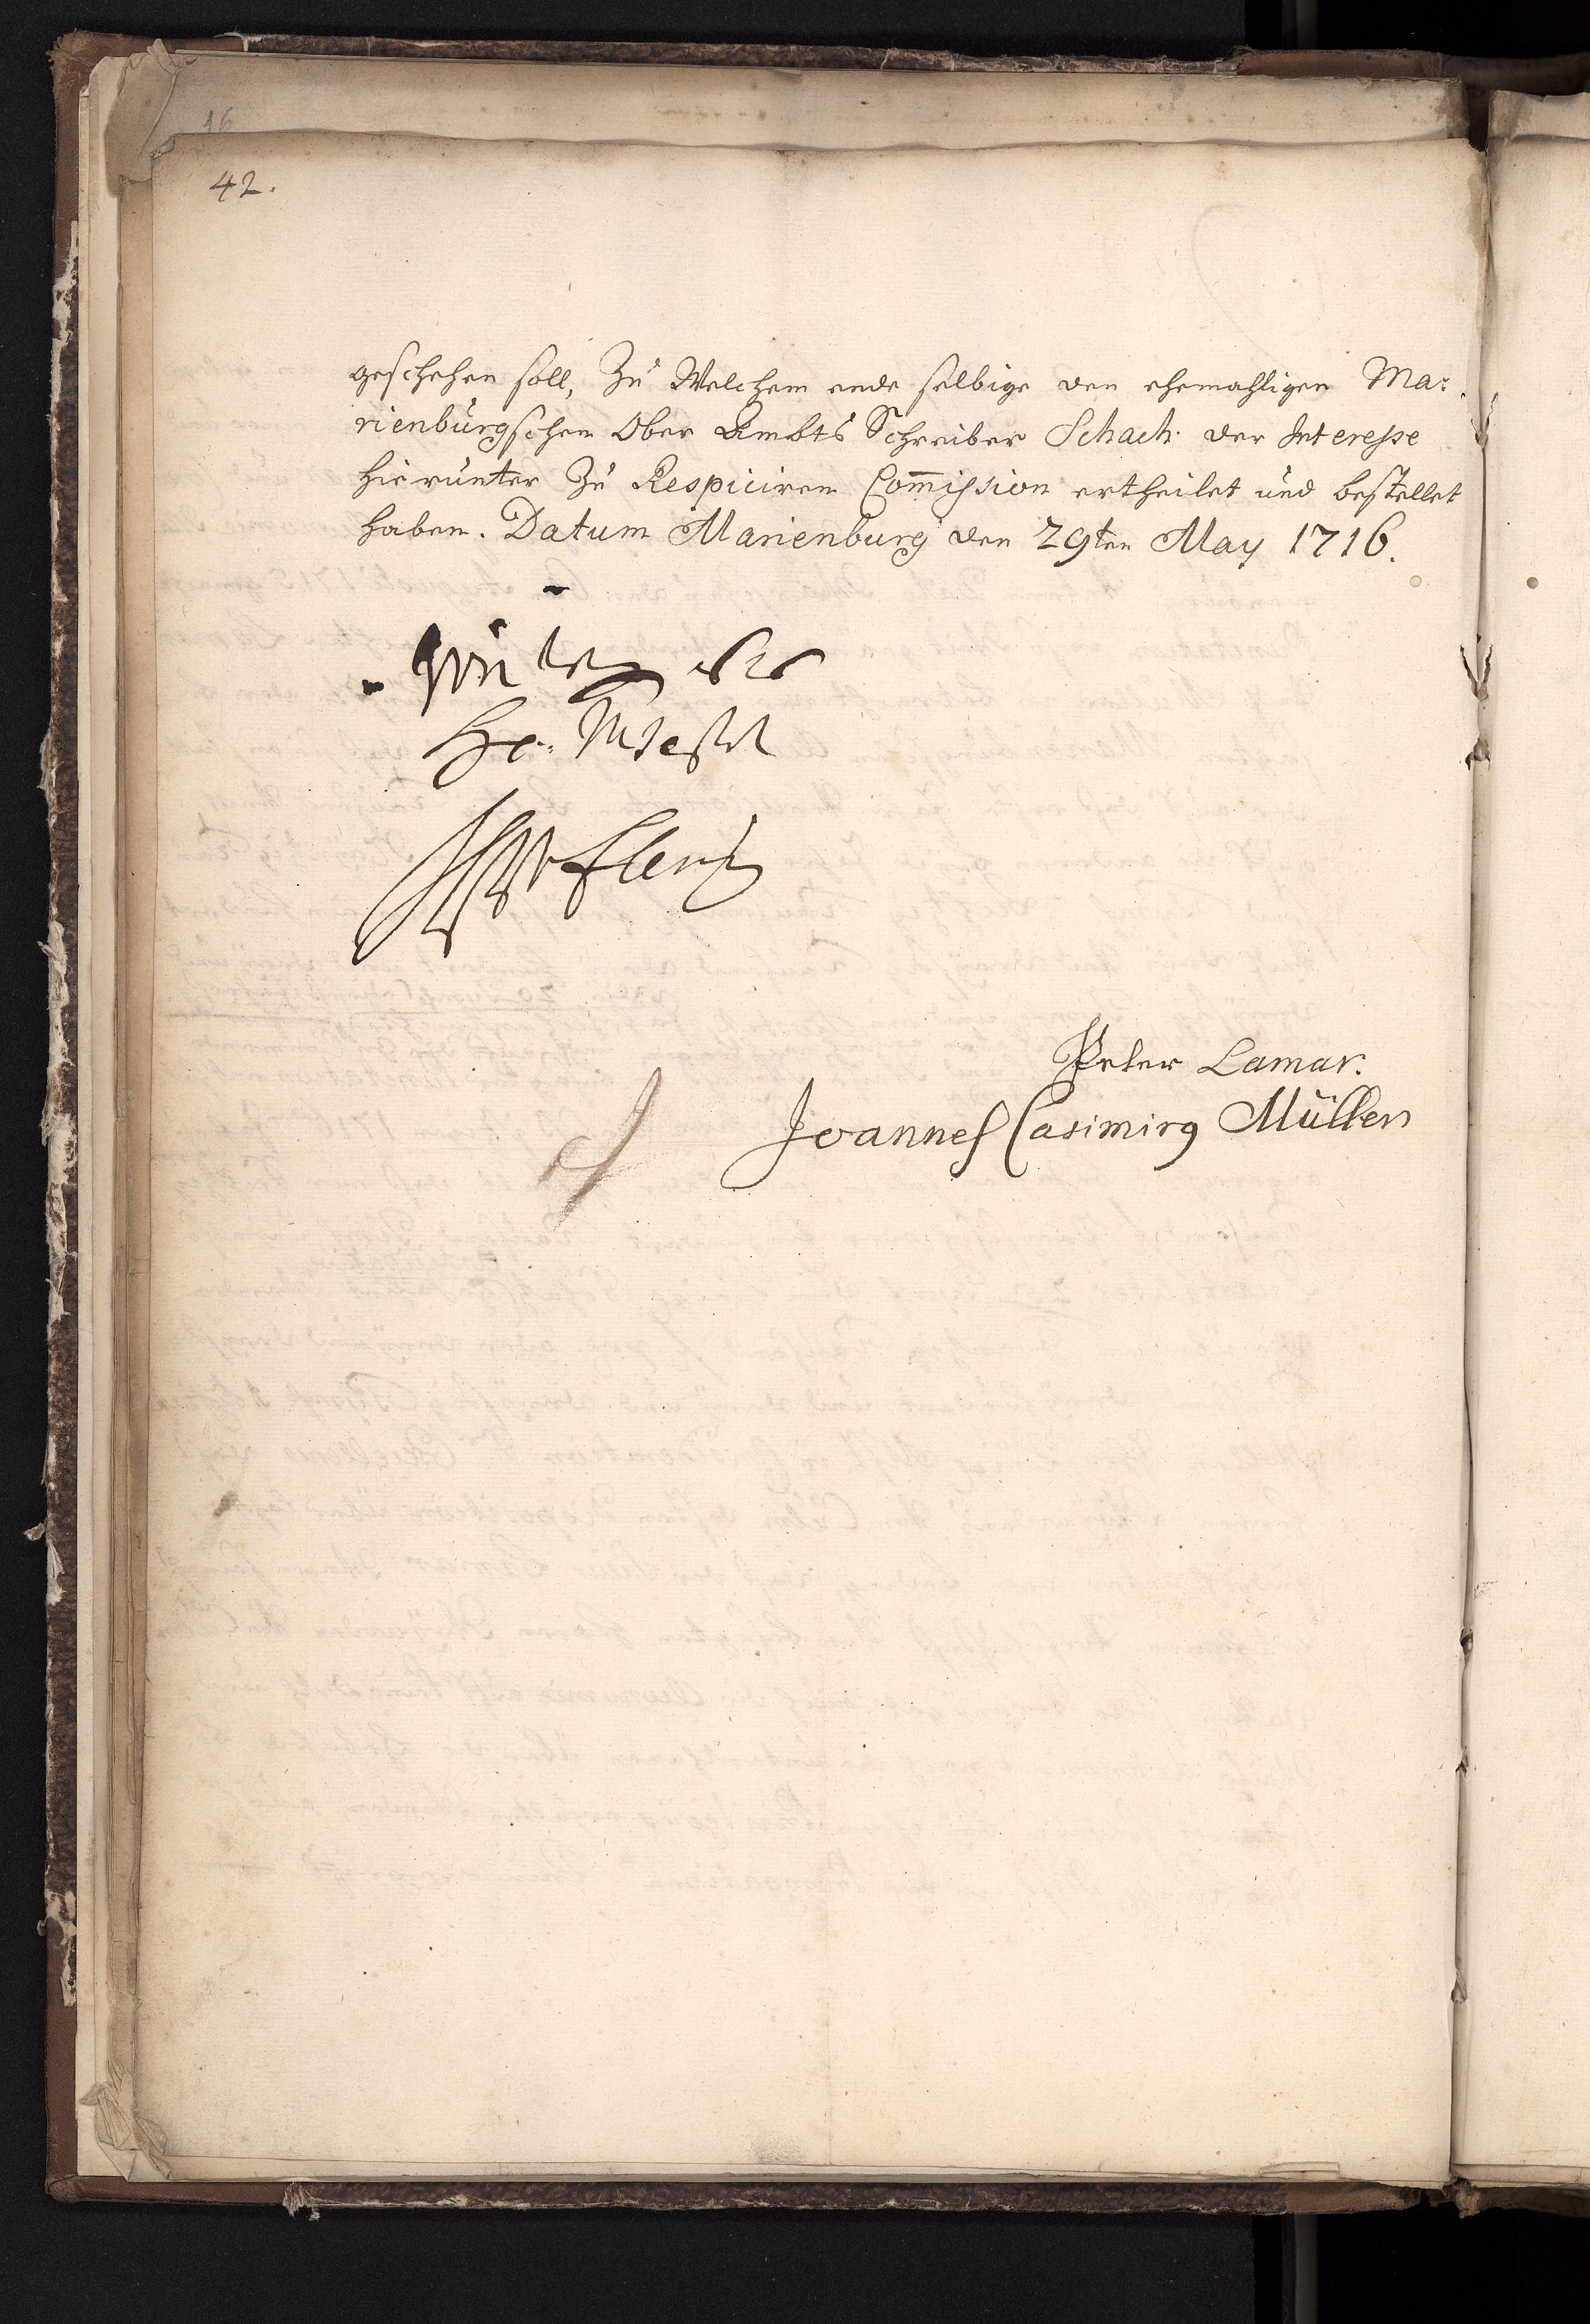 16
42.
geschehen soll, Zu Welchem ende selbige den ehemahligen Ma=
rienburgschen Ober Ambts Schreiber Schach der Interesse
hierunter Zu Respiciren Com̄ission ertheilet und bestellet
haben. Datum Marienburg den 29ten May 1716.
Peter Lamar.
Joannes Casimirg Müller